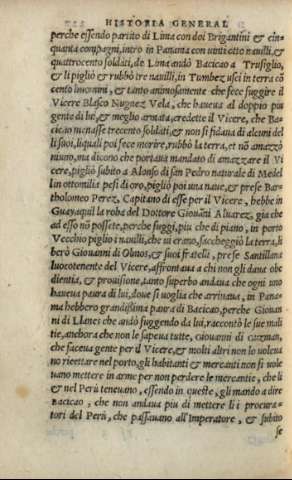 HISTORIA GENERAL
perche essendo partito di Lima con doi Brigantini & cin-
quanta compagni, intrò in Panama con uinti otto nauilli, &
quattrocento soldati, de Lima andò Bacicao a Trusiglio,
& li pigliò & rubbò tre nauilli, in Tumbez uscì in terra cō
cento huomini, & tanto animosamente che fece fuggire il
Vicere Blasco Nugnez Vela, che haueua al doppio piu
gente di lui, & meglio armata, credette il Vicere, che Ba-
cicao menasse trecento soldati, & non si fidaua di alcuni del
li suoi, liquali poi fece morire, rubbò la terra, et nō amazzò
niuno, ma dicono che portaua mandato di amazzare il Vi
cere, pigliò subito a Alonso di san Pedro naturale di Medel
lin ottomilia pesi di oro, pigliò poi una naue, & prese Bar-
tholomeo Perez, Capitano di esse per il Vicere, hebbe in
Guayaquil la roba del Dottore Giouāni Aluarez, gia che
ad esso nō possete, perche fuggì, piu che di piano, in porto
Vecchio pigliò i nauilli, che ui erano, saccheggiò la terra, li
berò Giouanni di Olmos, & suoi fratelli, prese Santillana
luocotenente del Vicere, affrontaua a chi non gli daua obe
dientia, & prouisione, tanto superbo andaua che ogni uno
haueua paura di lui, doue si voglia che arriuaua, in Pana-
ma hebbero grandissima paura di Bacicao, perche Giouan
ni di Llanes che andò fuggendo da lui, raccontò le sue mali
tie, anchora che non le sapeua tutte, Giouanni di Guzman,
che faceua gente per il Vicere, & molti altri non lo voleua
no riceuere nel porto, gli habitanti & mercanti non si vole
uano mettere in arme per non perdere le mercantie, che li
& nel Perù teneuano, essendo in queste, gli mando a dire
Bacicao, che non andaua piu di mettere li i procura-
tori del Perù, che passauano all'Imperatore, & subito
se